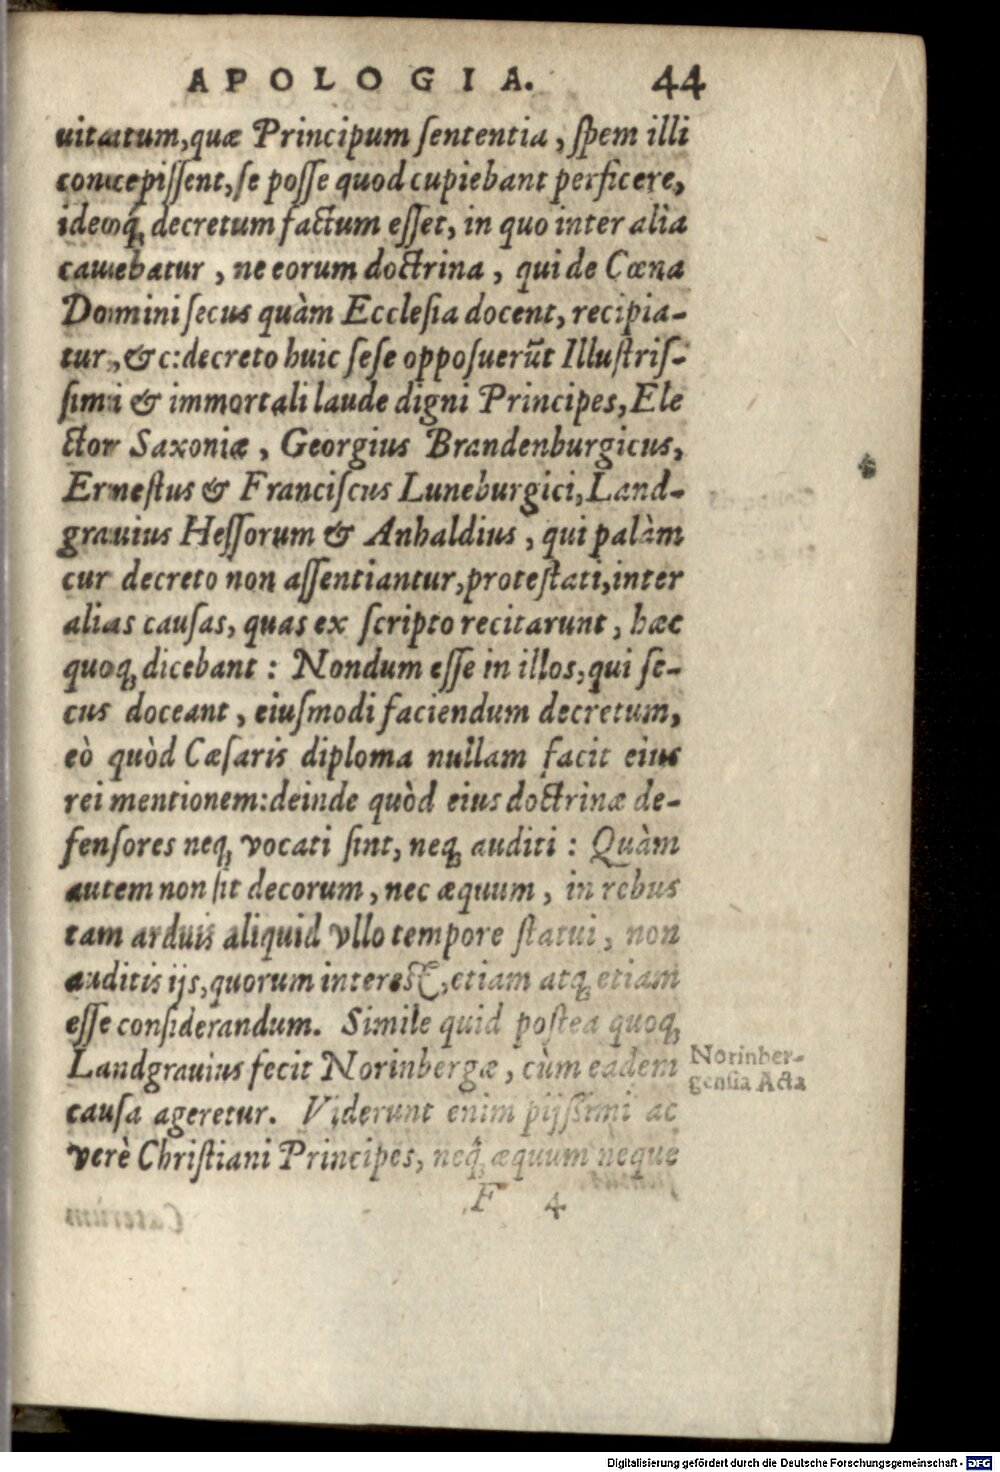 APOLOGIA. 44
uitatum, quæ Principum ſententia, ſpem illi
concepiſſent, ſe poſſe quod cupiebant perficere,
idemq́; decretum factum eſſet, in quo inter alia
cauebatur, ne eorum doctrina, qui de Cœna
Domini ſecus quàm Eccleſia docent, recipia-
tur, &c: decreto huic ſeſe oppoſuerūt Illuſtriſ-
ſimi & immortali laude digni Principes, Ele
ctor Saxoniæ, Georgius Brandenburgicus,
Erneſtus & Franciſcus Luneburgici, Land-
grauius Heſſorum & Anhaldius, qui palàm
cur decreto non aſſentiantur, proteſtati, inter
alias cauſas, quas ex ſcripto recitarunt, hæc
quoq; dicebant: Nondum eſſe in illos, qui ſe-
cus doceant, eiuſmodi faciendum decretum,
eò quòd Cæſaris diploma nullam facit eius
rei mentionem: deinde quòd eius doctrinæ de-
fenſores neq; vocati ſint, neq; auditi: Quàm
autem non ſit decorum, nec æquum, in rebus
tam arduis aliquid vllo tempore ſtatui, non
auditis ijs, quorum intereſt, etiam atq; etiam
eſſe conſiderandum. Simile quid poſtea quoq;
Landgrauius fecit Norinbergæ, cùm eadem
Norinber-
genſia Acta
cauſa ageretur. Viderunt enim pijſſimi ac
verè Chriſtiani Principes, neq́; æquum neque
F 4
Digitalisierung gefördert durch die Deutsche Forschungsgemeinschaft - DFG